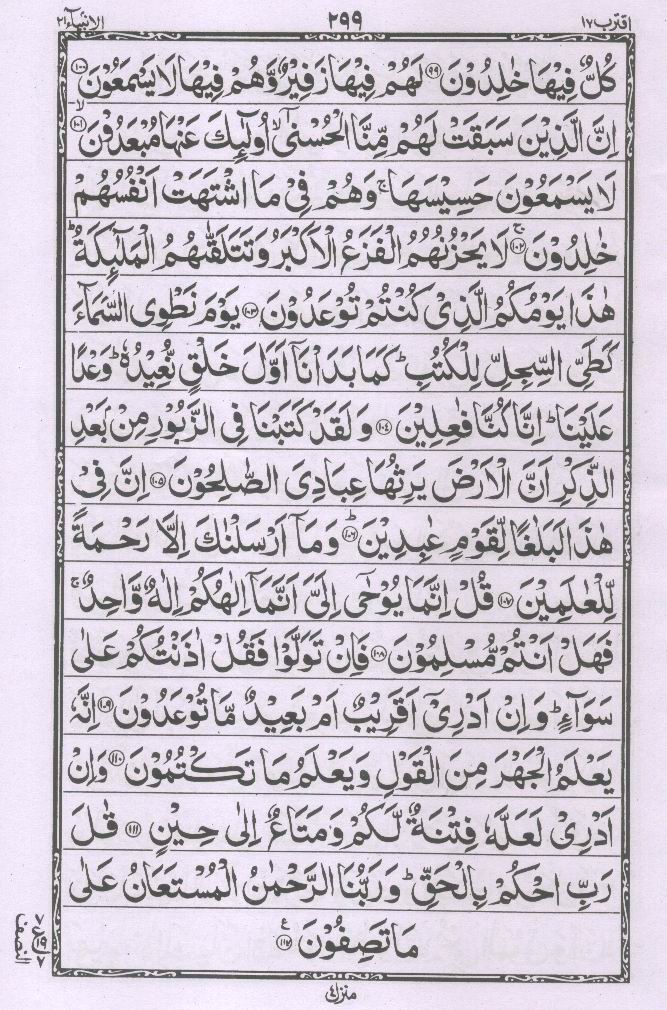 اقترب ١٧ ٢٩٩ الانبياء ٢١
كُلٌّ فِيْهَا خٰلِدُوْنَ ﴿٩٩﴾ لَهُمْ فِيْهَا زَفِيْرٌ وَّهُمْ فِيْهَا لَا يَسْمَعُوْنَ ﴿١٠٠﴾
اِنَّ الَّذِيْنَ سَبَقَتْ لَهُمْ مِّنَّا الْحُسْنٰٓى ۙ اُولٰٓئِكَ عَنْهَا مُبْعَدُوْنَ ﴿١٠١﴾ ۙ
لَا يَسْمَعُوْنَ حَسِيْسَهَا ۚ وَهُمْ فِيْ مَا اشْتَهَتْ اَنْفُسُهُمْ
خٰلِدُوْنَ ﴿١٠٢﴾ ۚ لَا يَحْزُنُهُمُ الْفَزَعُ الْاَكْبَرُ وَتَتَلَقّٰىهُمُ الْمَلٰٓئِكَةُ ؕ
هٰذَا يَوْمُكُمُ الَّذِيْ كُنْتُمْ تُوْعَدُوْنَ ﴿١٠٣﴾ يَوْمَ نَطْوِى السَّمَآءَ
كَطَيِّ السِّجِلِّ لِلْكُتُبِ ؕ كَمَا بَدَاْنَآ اَوَّلَ خَلْقٍ نُّعِيْدُهٗ ؕ وَعْدًا
عَلَيْنَا ؕ اِنَّا كُنَّا فٰعِلِيْنَ ﴿١٠٤﴾ وَلَقَدْ كَتَبْنَا فِى الزَّبُوْرِ مِنْۢ بَعْدِ
الذِّكْرِ اَنَّ الْاَرْضَ يَرِثُهَا عِبَادِيَ الصّٰلِحُوْنَ ﴿١٠٥﴾ اِنَّ فِيْ
هٰذَا لَبَلٰغًا لِّقَوْمٍ عٰبِدِيْنَ ﴿١٠٦﴾ ؕ وَمَآ اَرْسَلْنٰكَ اِلَّا رَحْمَةً
لِّلْعٰلَمِيْنَ ﴿١٠٧﴾ قُلْ اِنَّمَا يُوْحٰٓى اِلَيَّ اَنَّمَآ اِلٰهُكُمْ اِلٰهٌ وَّاحِدٌ ۚ
فَهَلْ اَنْتُمْ مُّسْلِمُوْنَ ﴿١٠٨﴾ فَاِنْ تَوَلَّوْا فَقُلْ اٰذَنْتُكُمْ عَلٰى
سَوَآءٍ ؕ وَاِنْ اَدْرِيْٓ اَقَرِيْبٌ اَمْ بَعِيْدٌ مَّا تُوْعَدُوْنَ ﴿١٠٩﴾ اِنَّهٗ
يَعْلَمُ الْجَهْرَ مِنَ الْقَوْلِ وَيَعْلَمُ مَا تَكْتُمُوْنَ ﴿١١٠﴾ وَاِنْ
اَدْرِيْ لَعَلَّهٗ فِتْنَةٌ لَّكُمْ وَمَتَاعٌ اِلٰى حِيْنٍ ﴿١١١﴾ قٰلَ
رَبِّ احْكُمْ بِالْحَقِّ ؕ وَرَبُّنَا الرَّحْمٰنُ الْمُسْتَعَانُ عَلٰى
مَا تَصِفُوْنَ ﴿١١٢﴾ ع
النصف
منزل ٤